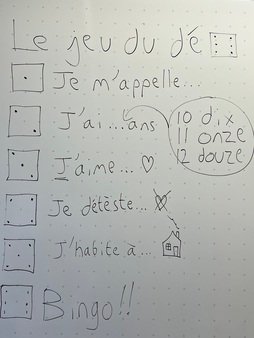 Le jeu du dé
Je m'appelle...
J'ai ... ans
10 dix
11 onze
12 douze
J'aime ...
Je détèste ...
J'habite à ...
Bingo!!